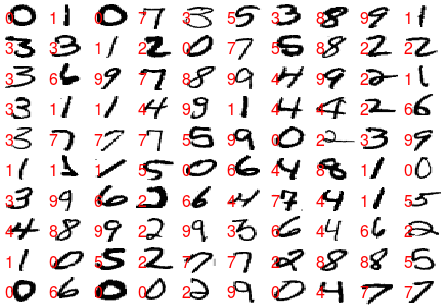 0 0 1 1 0 0 7 7 3 3 5 5 3 3 8 8 9 9 1 1
3 3 3 3 1 1 2 2 0 0 7 7 5 5 8 8 2 2 2 2
3 3 6 6 9 9 7 7 8 8 9 9 4 4 9 9 2 2 1 1
3 3 1 1 1 1 4 4 9 9 1 1 4 4 4 4 2 2 6 6
3 3 7 7 7 7 7 7 5 5 9 9 0 0 2 2 3 3 9 9
1 1 1 1 1 1 5 5 0 0 6 6 4 4 8 8 1 1 0 0
3 3 9 9 6 6 2 2 6 6 4 4 7 7 4 4 1 1 5 5
4 4 8 8 9 9 2 2 9 9 3 3 6 6 4 4 6 6 2 2
1 1 0 0 5 5 2 2 7 7 7 7 2 2 8 8 8 8 5 5
0 0 6 6 0 0 0 0 2 2 9 9 0 0 4 4 7 7 7 7